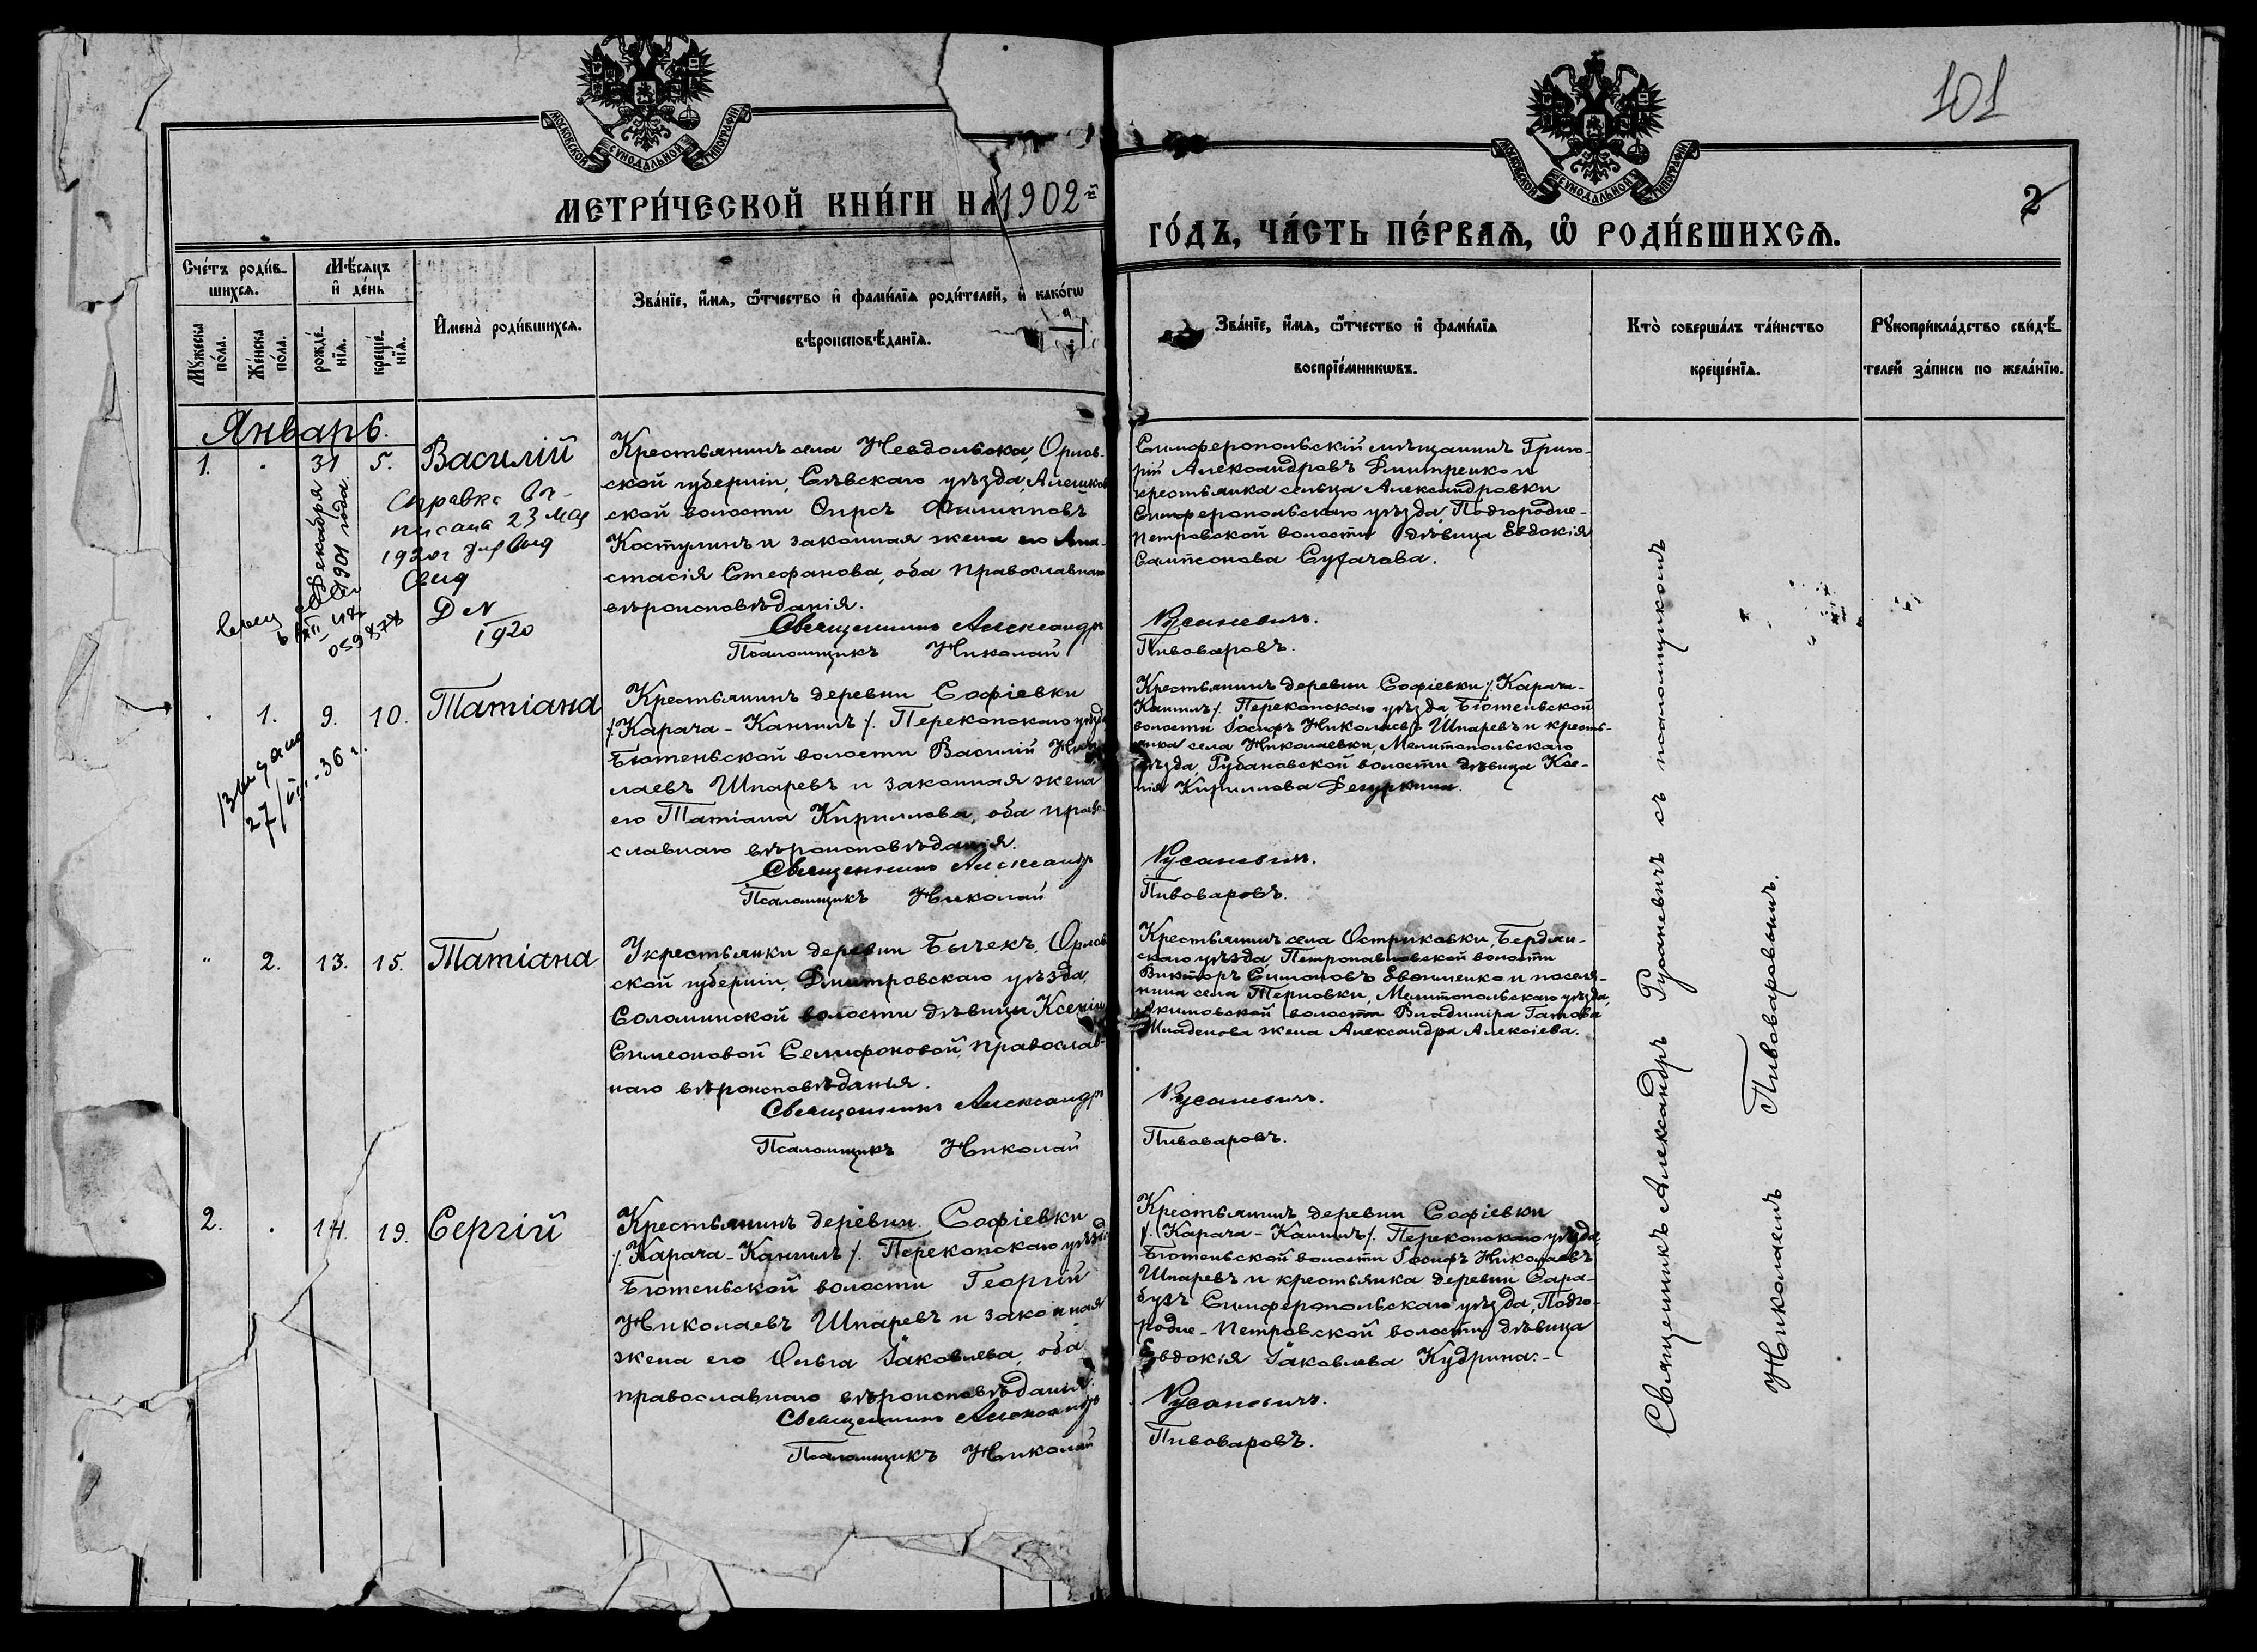 101
МОСКОВСКОЙ СУНОДАЛЬНОЙ ТИПОГРАФІИ
МОСКОВСКОЙ СУНОДАЛЬНОЙ ТИПОГРАФІИ
2
МЕТРИ́ЧЕСКОЙ КНИ́ГИ НА 1902й
ГО́ДЪ, ЧА́СТЬ ПЕ́РВАЯ, Ѡ РОДИ́ВШИХСЯ.
Сче́тъ роди́в-
шихся.
Мѣ́сяцъ
и де́нь
Мꙋжеска по́ла.
Же́нска по́ла.
рожде́-нїя.
креще́-нїя.
Имена̀ роди́вшихся.
Зва́нїе, и́мя, ѻ́тчество и фами́лїя роди́телей, и како́гѡ
вѣроисповѣ́данїя.
Зва́нїе, и́мя, ѻ́тчество и фами́лїя
воспрїе́мникѡвъ.
Кто̀ соверша́лъ та́инство
креще́нїя.
Рꙋкоприкла́дство свидѣ́-
телей за́писи по жела́нїю.
Январь.
1. 31 5. Василій
Декабря
1901 года.
Справка вы-
писана 23 мая
1920г
1920
059878
Крестьянинъ села Невдольска, Орлов-
ской губерніи, Сѣвскаго уѣзда, Алешков
ской волости Фирсъ Филипповъ
Костулинъ и законная жена его Ана-
стасія Стефанова, оба православнаго
вѣроисповѣданія.
Священникъ Александръ
Псаломщикъ Николай
Симферопольскій мѣщанинъ Григо-
рій Александровъ Дмитренко и
крестьянка сельца Александровки
Симферопольскаго уѣзда, Подгородне-
Петровской волости дѣвица Евдокія
Сампсонова Сугачова.
Русаневичъ.
Пивоваровъ.
1. 9. 10. Татіана
выдано
27/VII-36 г.
Крестьянинъ деревни Софіевки
/. Карача-Кангилъ /. Перекопскаго уѣзда
Бютеньской волости Василій Нико
лаевъ Шпаревъ и законная жена
его Татіана Кириллова, оба право-
славнаго вѣроисповѣданія.
Священникъ Александръ
Псаломщикъ Николай
Крестьянинъ деревни Софіевки /. Карача-
Кангилъ /. Перекопскаго уѣзда Бютеньской
волости Іосифъ Николаевъ Шпаревъ и кресть-
янка села Николаевки, Мелитопольскаго
уѣзда, Рубановской волости дѣвица Ксе-
нія Кириллова
Русаневичъ.
Пивоваровъ.
" 2. 13. 15. Татіана
У крестьянки деревни Бычекъ, Орлов
ской губерніи, Дмитровскаго уѣзда,
Соломинской волости дѣвицы Ксеніи
Симеоновой Селифоновой, православ-
наго вѣроисповѣданія.
Священникъ Александръ
Псаломщикъ Николай
Крестьянинъ села Остриковки, Бердян-
скаго уѣзда Петропавловской волости
Викторъ Симоновъ и поселя-
нина села Терновки, Мелитопольскаго уѣзда,
Акимовской волости Владиміра
Младенова жена Александра Алексіева.
Русаневичъ.
Пивоваровъ.
2. 14. 19. Сергій
Крестьянинъ деревни Софіевки
/. Карача-Кангилъ /. Перекопскаго уѣзда
Бютеньской волости Георгій
Николаевъ Шпаревъ и законная
жена его Ольга Іаковлева, оба
православнаго вѣроисповѣданія.
Священникъ Александръ
Псаломщикъ Николай
Крестьянинъ деревни Софіевки
/. Карача-Кангилъ /. Перекопскаго уѣзда
Бютеньской волости Іосифъ Николаевъ
Шпаревъ и крестьянка деревни Сара-
бузъ Симферопольскаго уѣзда, Подго-
родне-Петровской волости дѣвица
Евдокія Іаковлева Кудрина.-
Русаневичъ.
Пивоваровъ.
Священникъ Александръ Русаневичъ съ псаломщикомъ
Николаемъ Пивоваровымъ.